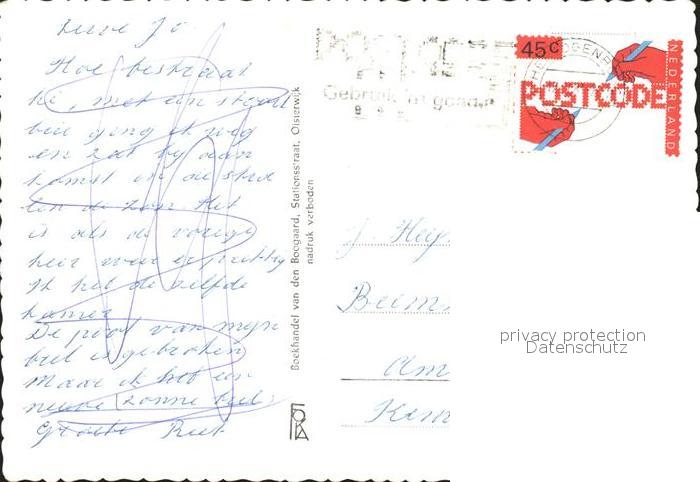 Lieve Jo
Hoe bestaat
hi, met een stoel
ging ik weg
en zat bij aan
komst in de stoe
len de zon. Het
is als de vorige
keer weer erg prettig
Ik heb de zelfde
kamer
De poot van mijn
bril is gebroken
Maar ik heb een
nieuwe (zonne bril)
Groete Riet
Boekhandel van den Boogaard, Stationsstraat, Oisterwijk
nadruk verboden
FOKA
POSTCODE
Gebruik 'm goed
45c
NEDERLAND
POSTCODE
J. Heij
Am
privacy protection
Datenschutz